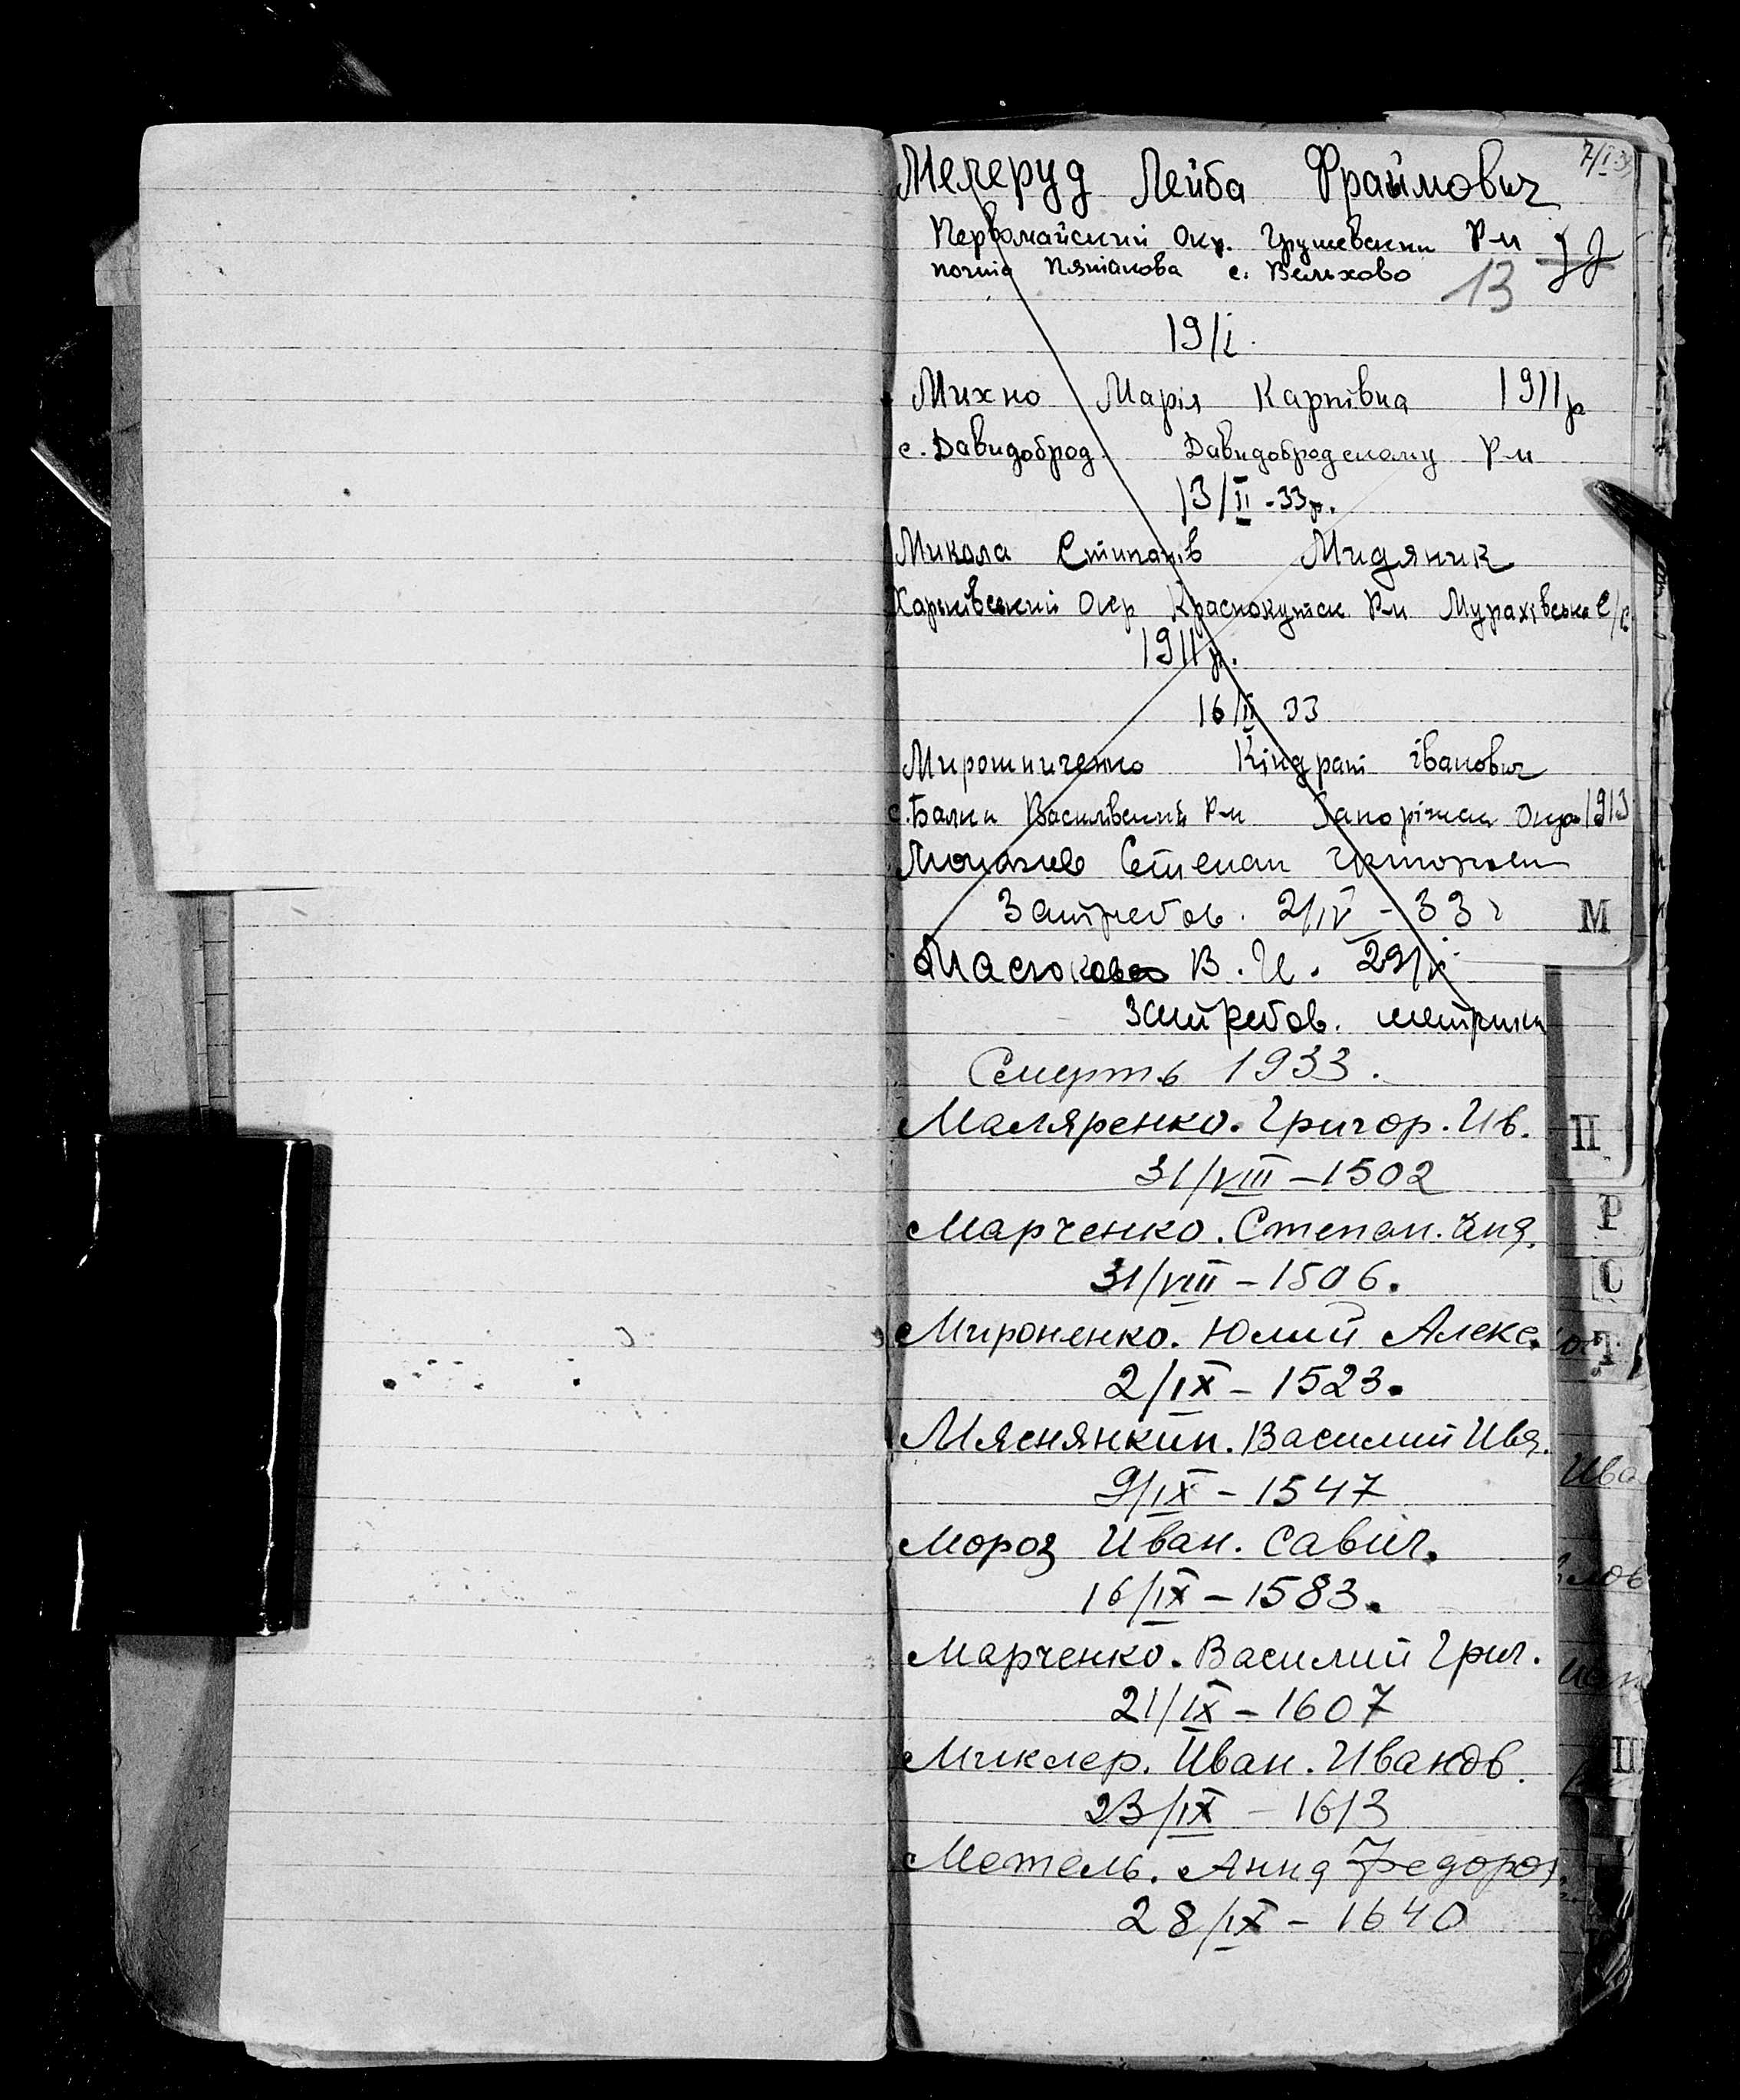 Мечеруд Лейба Фраймович
Первомайский Окр. Грушевский Р-н
почта с. Вельхово
13
19/I.
Михно Марія Карпівна 1911р
с. Давидоброд. Давидобродскому Р-н
13/II-33р.
Микола Стипанів Мидяник
Харьківський Окр Краснокутск Р-н Мурахівська С/р
1911р.
16/II 33
Мирошниченко Кіндрат Іванович
с. Балки Василівский Р-н Запоріжск Окр 1913
Степан
Затребов. 2/IV-33 г
В. И. 29/
Затребов. метрики
Смерть 1933.
Маляренко. Григор. Ив.
31/VIII-1502
Марченко. Степан. Анд.
31/VIII-1506.
Мироненко. Юлий Алекс.
2/IX-1523.
Мяснянкин. Василий Ив
9/IX-1547
Мороз Иван. Савич.
16/IX-1583.
Марченко. Василий Григ.
21/IX-1607
Миклер. Иван. Иванов.
23/IX-1613
Мотель. Анна Федоров
28/IX-1640
М
П
Р
С
Т
Ива